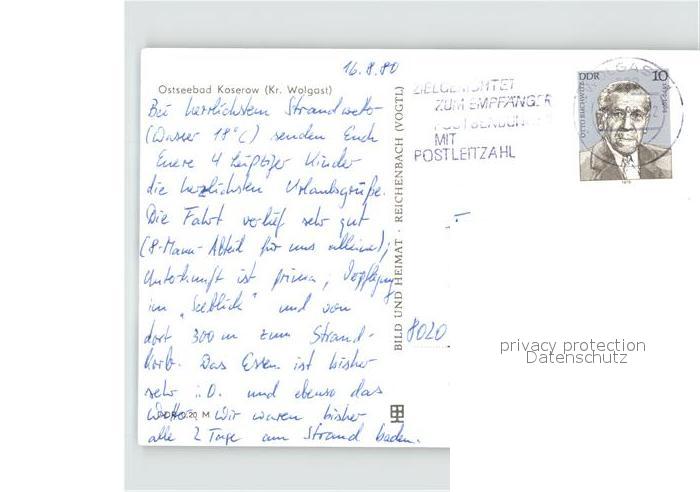 16.8.80
Ostseebad Koserow (Kr. Wolgast)
Bei herrlichstem Strandwetter
(Wasser 18°C) senden Euch
Eure 4 Leipziger Kinder
die herzlichsten Urlaubsgrüße.
Die Fahrt verlief sehr gut
(8-Mann-Abteil für uns alleine),
Unterkunft ist prima, Verpflegung
im „Seeblick" und von
dort 300 m zum Strand-
korb. Das Essen ist bisher
sehr i.O. und ebenso das
Wetter. Wir waren bisher
alle 2 Tage am Strand baden.
0,20 M
BILD UND HEIMAT · REICHENBACH (VOGTL)
ZIELGERICHTET
ZUM EMPFÄNGER
POSTSENDUNGEN
MIT
POSTLEITZAHL
WOLGAST
DDR 10
OTTO BUCHWITZ
8020
privacy protection
Datenschutz